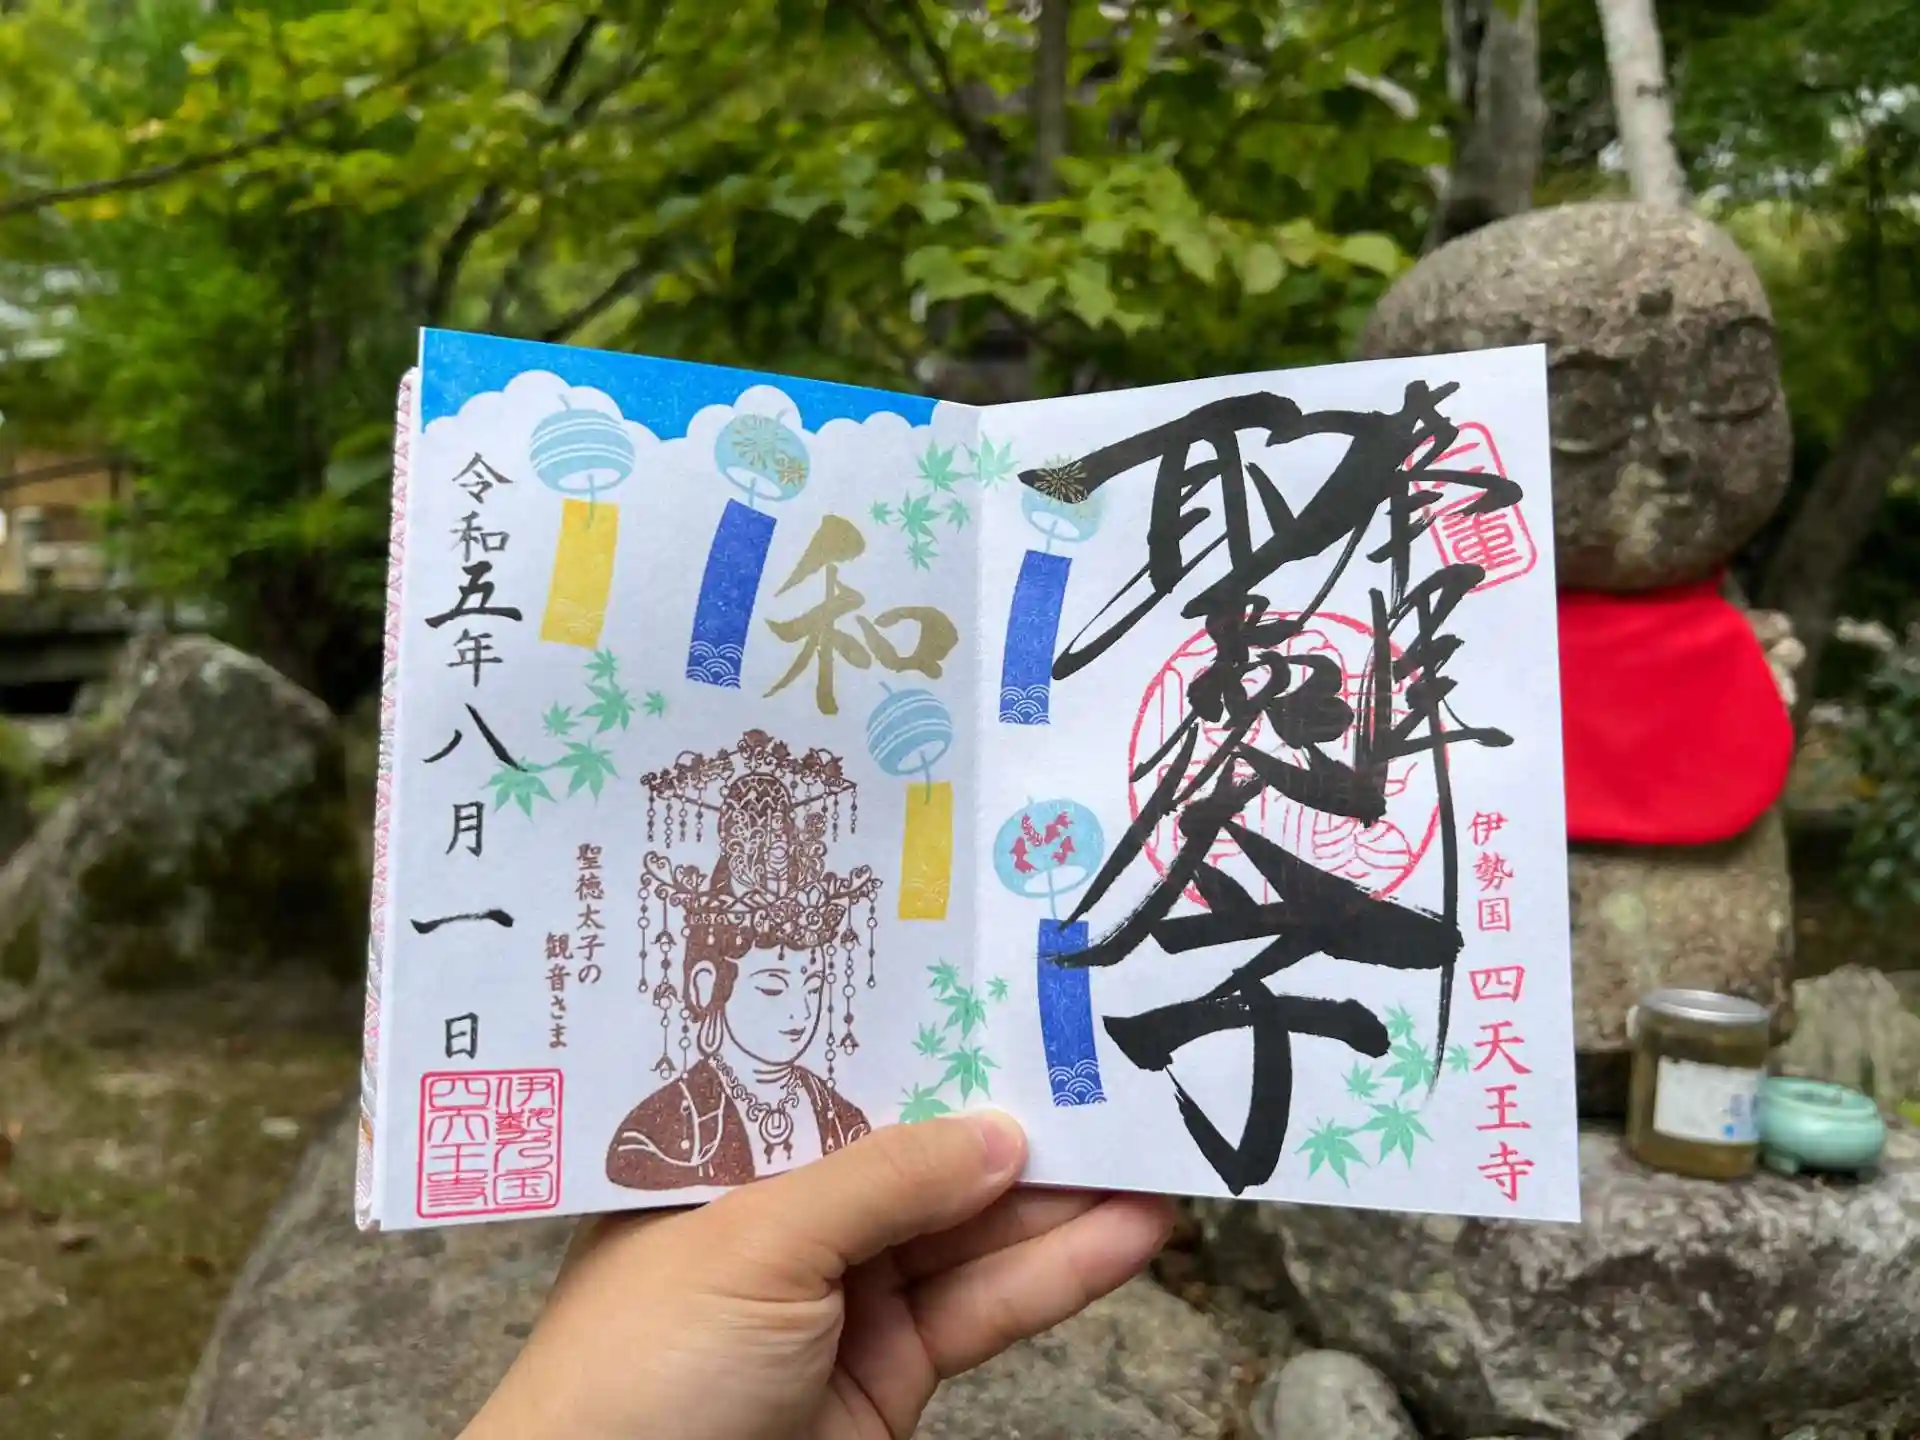 奉拝
聖徳太子
三重
伊勢国 四天王寺
和
聖徳太子の
観音さま
令和五年八月一日
伊勢乃国
四天王寺